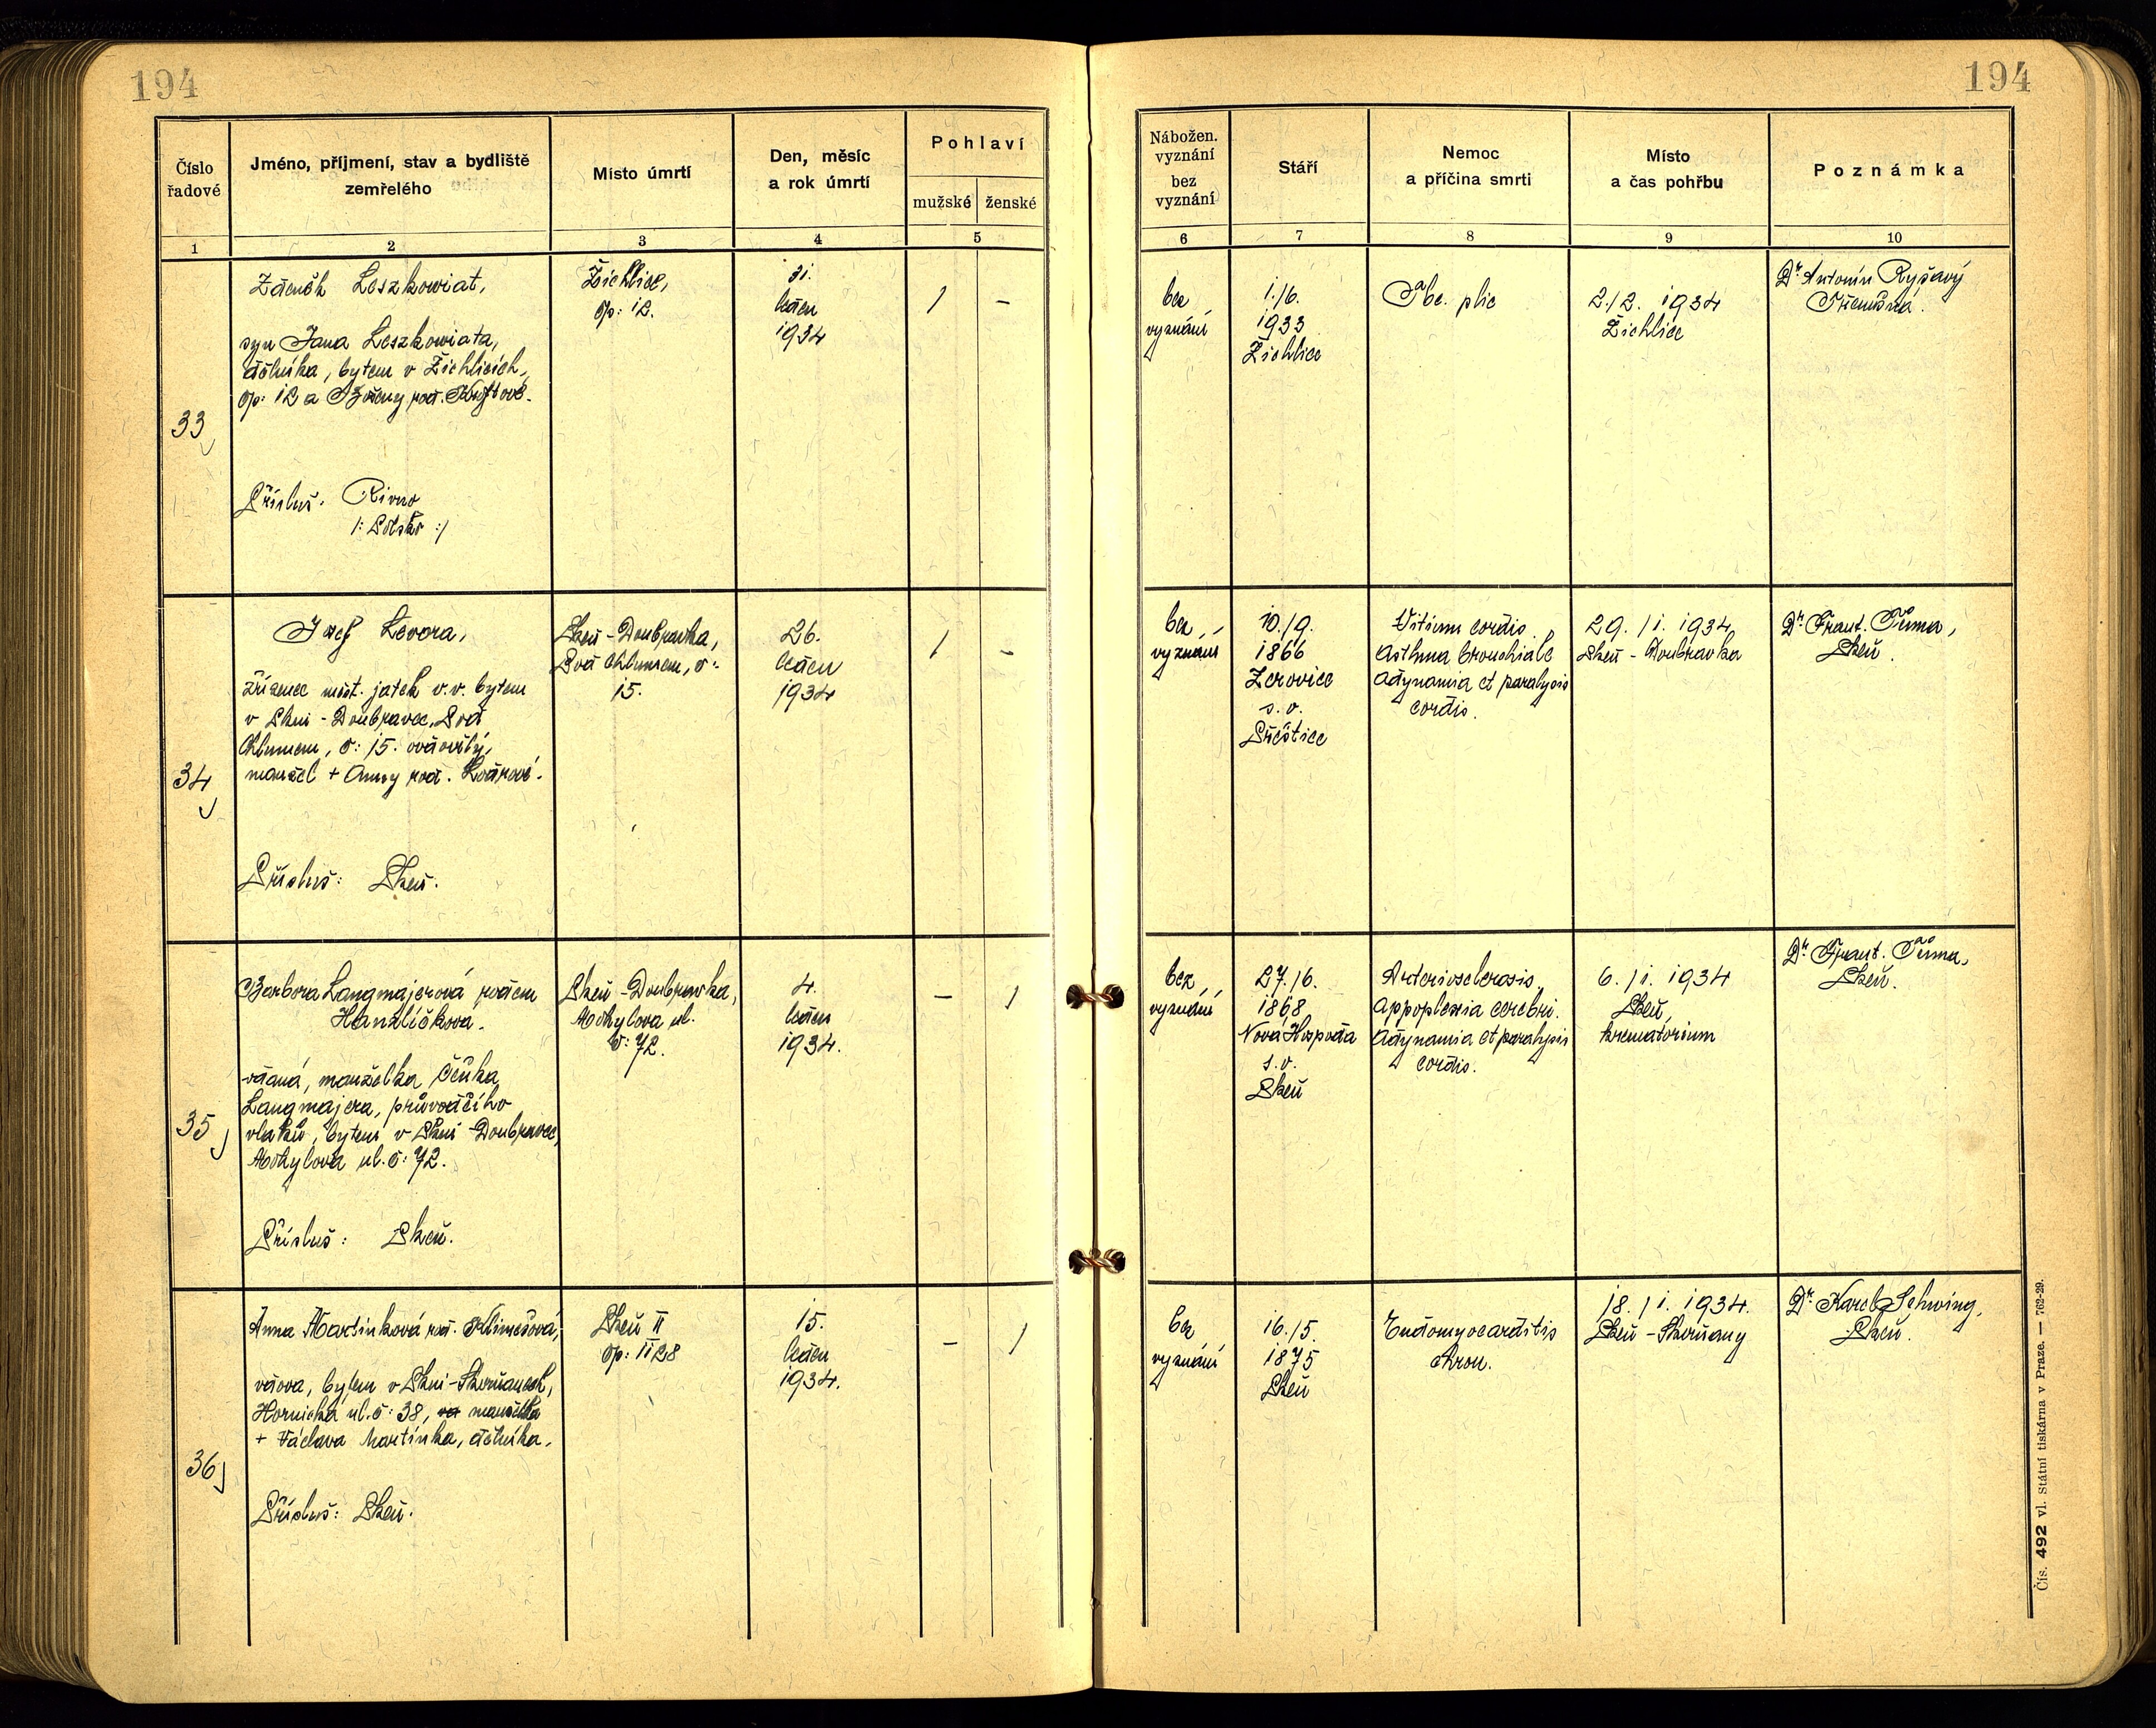 194
194
Číslo
řadové
Jméno, příjmení, stav a bydliště
zemřelého
Místo úmrtí
Den, měsíc
a rok úmrtí
Pohlaví
mužské
ženské
1
2
3
4
5
Nábožen.
vyznání
bez
vyznání
Stáří
Nemoc
a příčina smrti
Místo
a čas pohřbu
Poznámka
6
7
8
9
10
33
Zdeněk Leszkowiat,
syn Jana Leszkowiata,
dělníka, bytem v Žichlicích,
čp: 12 a Boženy roz.
Přísluš: Rivno
/: Polsko :/
Žichlice,
čp: 12.
31.
leden
1934
1
–
bez
vyznání
1./6.
1933
Žichlice
Tbc. plic
2./2. 1934
Žichlice
Dr Antonín Ryšavý
Třemošná.
34
Josef Levora,
zřízenec měst. jatek v.v. bytem
v Plzni - Doubravce, Pod
Chlumem, č: 15. ovdovělý,
manžel + Anny roz.
Přísluš: Plzeň.
Plzeň - Doubravka,
Pod Chlumem, č:
15.
26.
leden
1934
1
–
bez
vyznání
10./9.
1866
Zerovice
s. o.
Přeštice
Vitium cordis.
Asthma bronchiale
Adynamia et paralysis
cordis.
29. /1. 1934
Plzeň - Doubravka
Dr Frant. Tůma,
Plzeň.
35
Barbora Langmajerová rozen
Hanzlíčková.
vdaná, manželka Čeňka
Langmajera, průvodčího
vlaků, bytem v Plzni - Doubravce,
Mohylová ul. č: 72.
Přísluš: Plzeň.
Plzeň - Doubravka,
Mohylova ul.
č: 72.
4.
leden
1934.
–
1
bez
vyznání
27./6.
1868
Nová Hospoda
s. o.
Plzeň
Arteriosclerosis
Appoplexia cerebri.
Adynamia et paralysis
cordis.
6. /1. 1934
Plzeň,
krematorium
Dr Frant. Tůma,
Plzeň.
36
Anna Martinková roz. Klimešová,
vdova, bytem v Plzni - Skvrňanech,
Hornická ul. č: 38, manželka
+ Václava Martínka, dělníka.
Přísluš: Plzeň.
Plzeň II
čp: 1128
15.
leden
1934.
–
1
bez
vyznání
16./5.
1875
Plzeň
Endomyocarditis
chron.
18. /1. 1934.
Plzeň - Skvrňany
Dr Karel Schwing,
Plzeň.
Čís. 492 vl. Státní tiskárna v Praze. — 762-29.